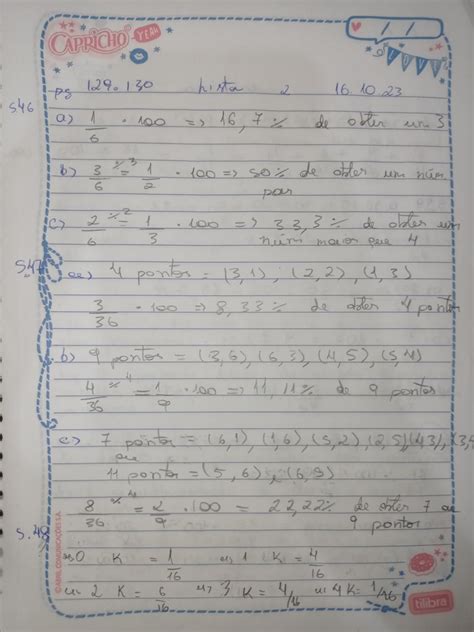 CAPRICHO YEAH
pg 129.130 Lista 2 16.10.23
546
a) 1/6 . 100 => 16,7% de obter um 3
b) 3/6 ÷3 = 1/2 . 100 => 50% de obter um núm
par
c) 2/6 ÷2 = 1/3 . 100 => 33,3% de obter um
núm maior que 4
547
a) 4 pontos = (3,1), (2,2), (1,3)
3/36 . 100 => 8,33% de obter 4 pontos
b) 9 pontos = (3,6), (6,3), (4,5), (5,4)
4/36 ÷4 = 1/9 . 100 => 11,11% de 9 pontos
c) 7 pontos = (6,1), (1,6), (5,2), (2,5), (4,3), (3,
ou
11 pontos = (5,6), (6,5)
8/36 ÷4 = 2/9 . 100 = 22,22% de obter 7 ou
9 pontos
5.48
0 K = 1/16 1 K = 4/16
2 K = 6/16 3 K = 4/16 4K = 1/16
tilibra